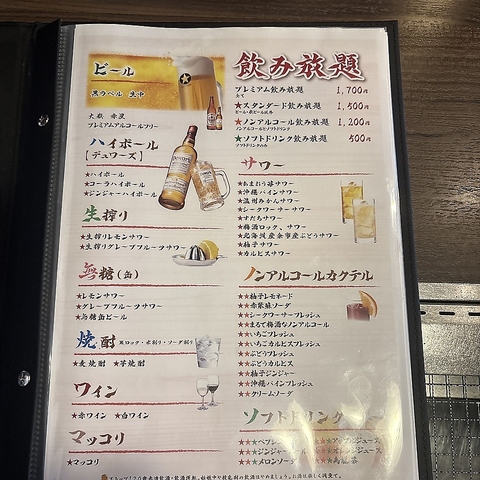 ビール
黒ラベル 生中
プレミアムアルコールフリー
ハイボール
【デュワーズ】
★ハイボール
★コーラハイボール
★ジンジャーハイボール
生搾り
★生搾りレモンサワー
★生搾りグレープフルーツサワー
無糖(缶)
★レモンサワー
★グレープフルーツサワー
★無糖缶ビール
焼酎 ロック・水割り・ソーダ割り
★麦焼酎 ★芋焼酎
ワイン
★赤ワイン ★白ワイン
マッコリ
★マッコリ
飲み放題
プレミアム飲み放題 1,700円
全て
★スタンダード飲み放題 1,500円
★ノンアルコール飲み放題 1,200円
ノンアルコールとソフトドリンク
★ソフトドリンク飲み放題 500円
ソフトドリンクのみ
サワー
★あまおう苺サワー
★沖縄パインサワー
★温州みかんサワー
★シークワーサーサワー
★すだちサワー
★梅酒ロック、サワー
★北海道産余市産ぶどうサワー
★柚子サワー
★カルピスサワー
ノンアルコールカクテル
★★柚子レモネード
★★赤紫蘇ソーダ
★★シークワーサーフレッシュ
★★まるで梅酒なノンアルコール
★★いちごフレッシュ
★★いちごカルピスフレッシュ
★★ぶどうフレッシュ
★★ぶどうカルピス
★★柚子ジンジャー
★★沖縄パインフレッシュ
★★クリームソーダ
ソフトドリンク
★★★メロンソーダ